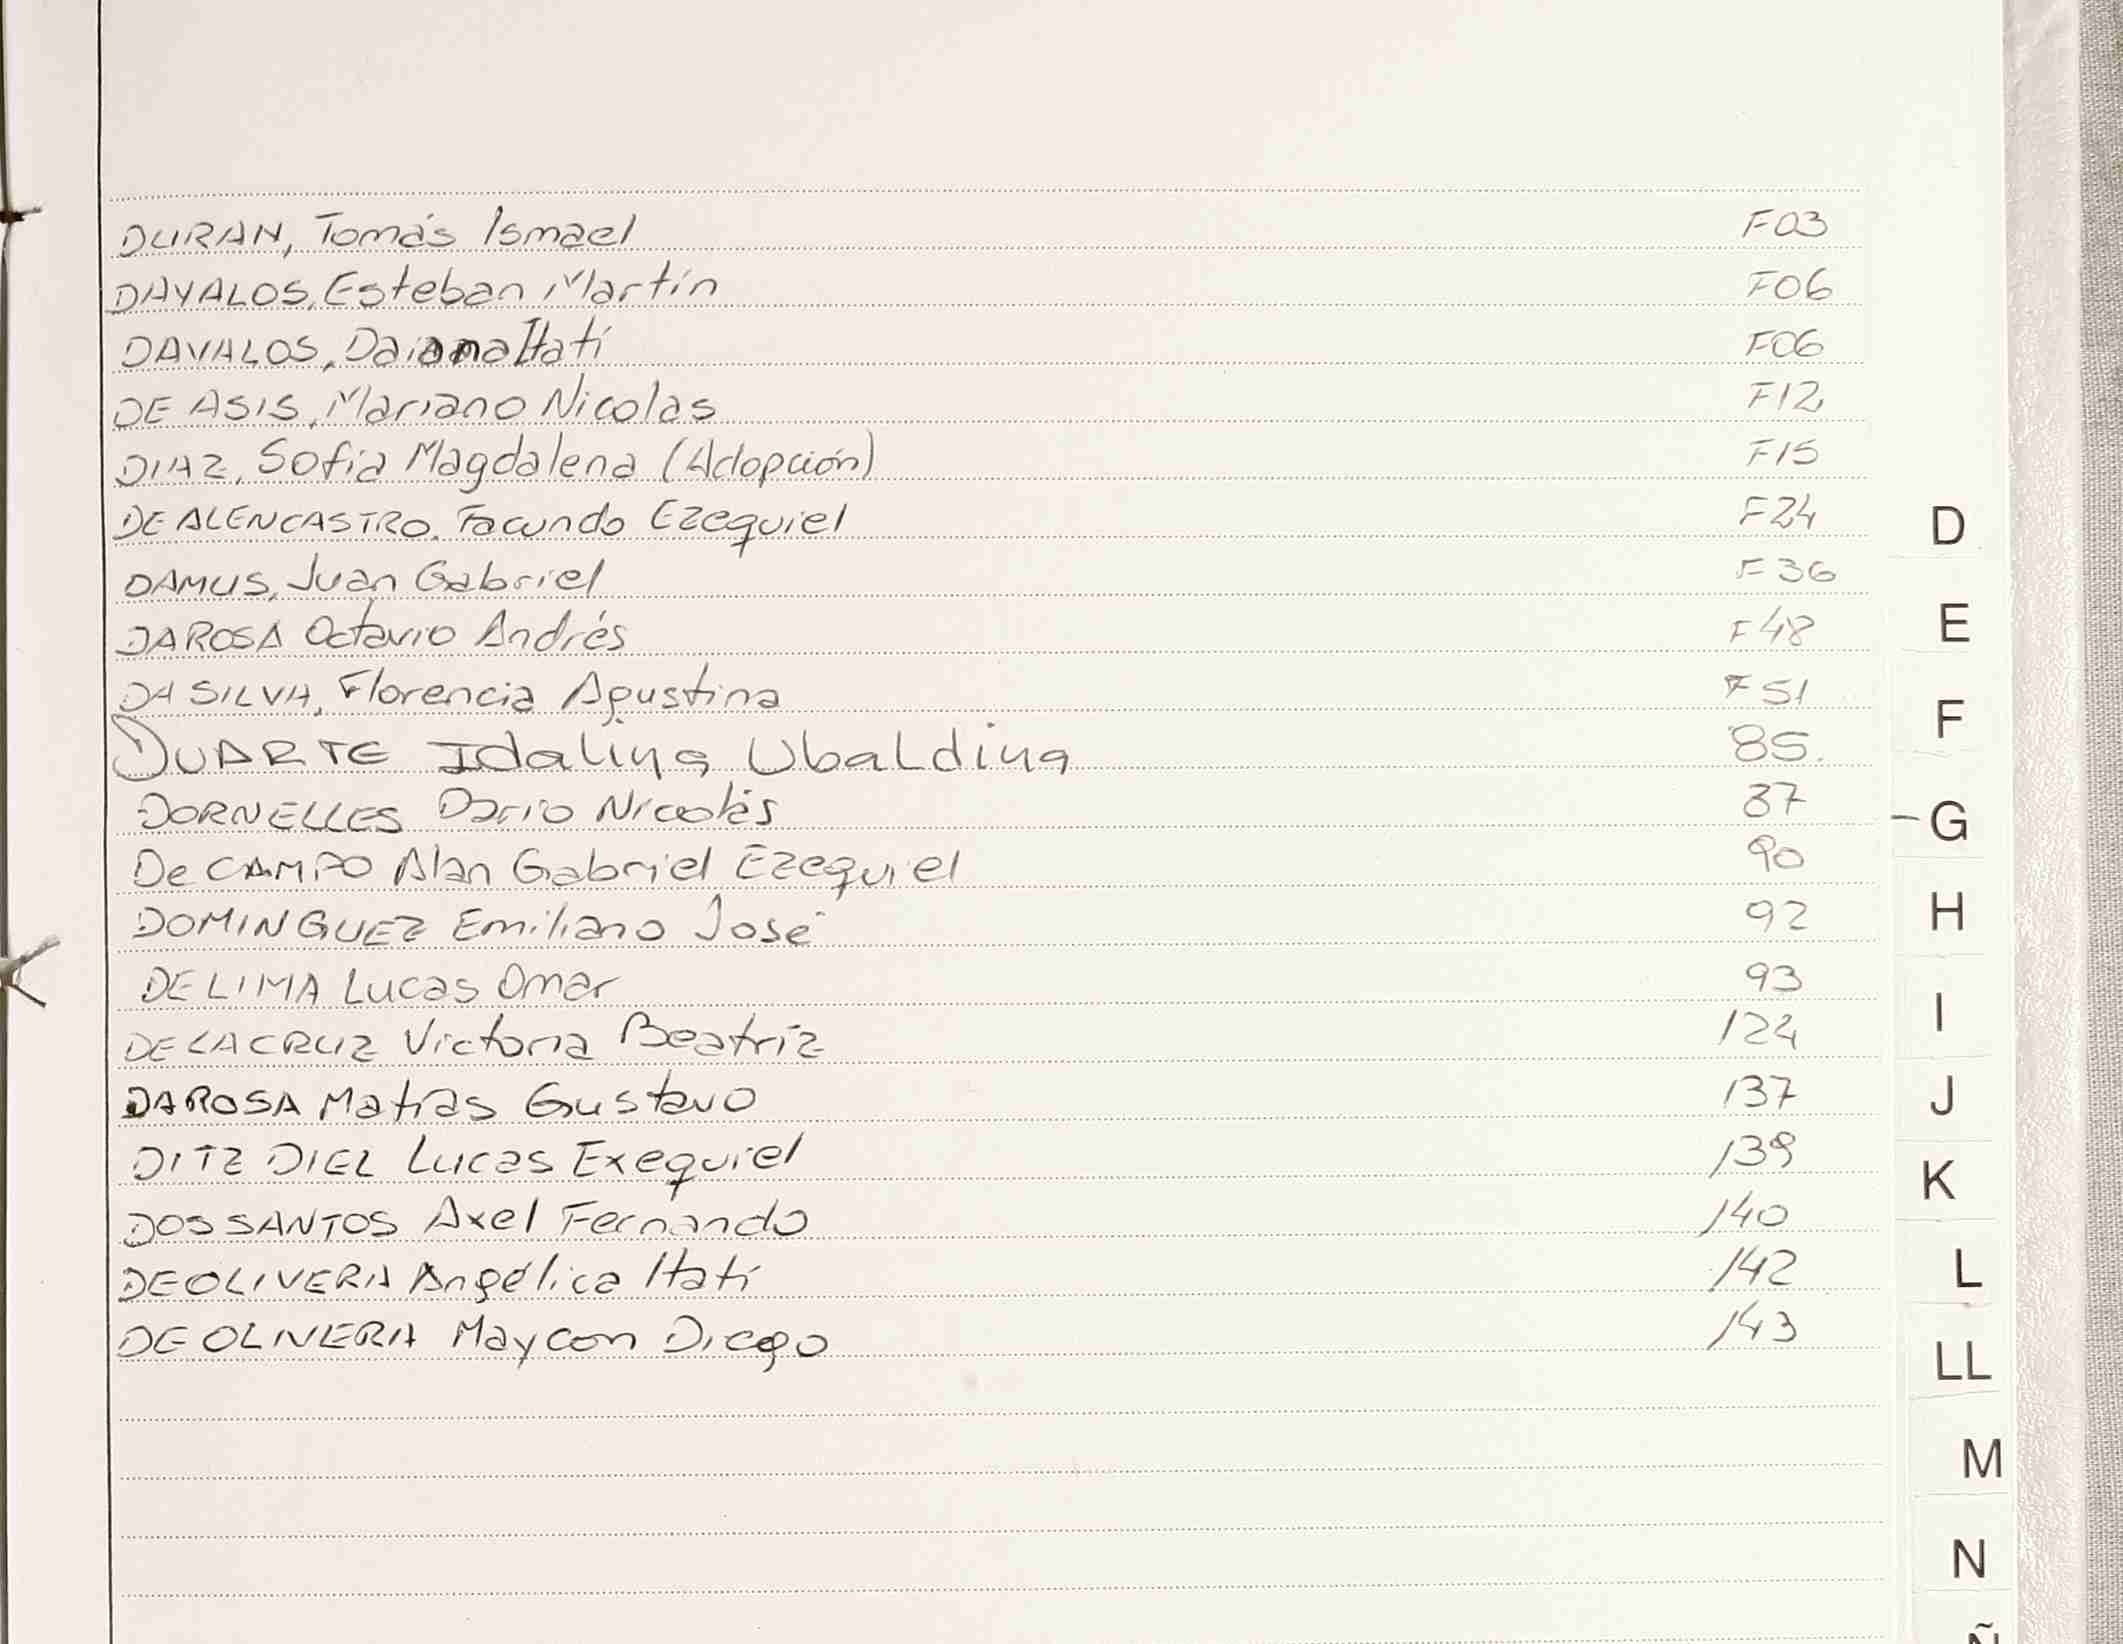 DURAN, Tomás Ismael F03
DAVALOS, Esteban Martín F06
DAVALOS, Daiana Itatí F06
DE ASIS, Mariano Nicolas F12
DIAZ, Sofía Magdalena (Adopción) F15
DE ALENCASTRO. Facundo Ezequiel F24
DAMUS, Juan Gabriel F36
DAROSA Octavio Andrés F48
DA SILVA, Florencia Agustina F51
DUARTE Idalina Ubaldina 85.
DORNELLES Dario Nicolás 87
De CAMPO Alan Gabriel Ezequiel 90
DOMINGUEZ Emiliano José 92
DE LIMA Lucas Omar 93
DE LA CRUZ Victoria Beatriz 124
DAROSA Matías Gustavo 137
DITZ DIEL Lucas Exequiel 139
DOS SANTOS Axel Fernando 140
DE OLIVERA Angélica Itatí 142
DE OLIVERA Maycon Diego 143
D
E
F
G
H
I
J
K
L
LL
M
N
Ñ